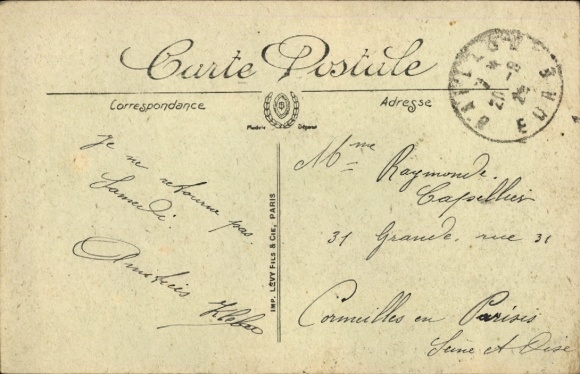 Carte Postale
Correspondance
Adresse
Modèle Déposé
Je ne retourne pas
Samedi
Amitiés
IMP. LÉVY FILS & CIE, PARIS
Mme Raymonde
Capellier
31 Grande rue 31
Cormeilles en Parisis
Seine et Oise
EURE